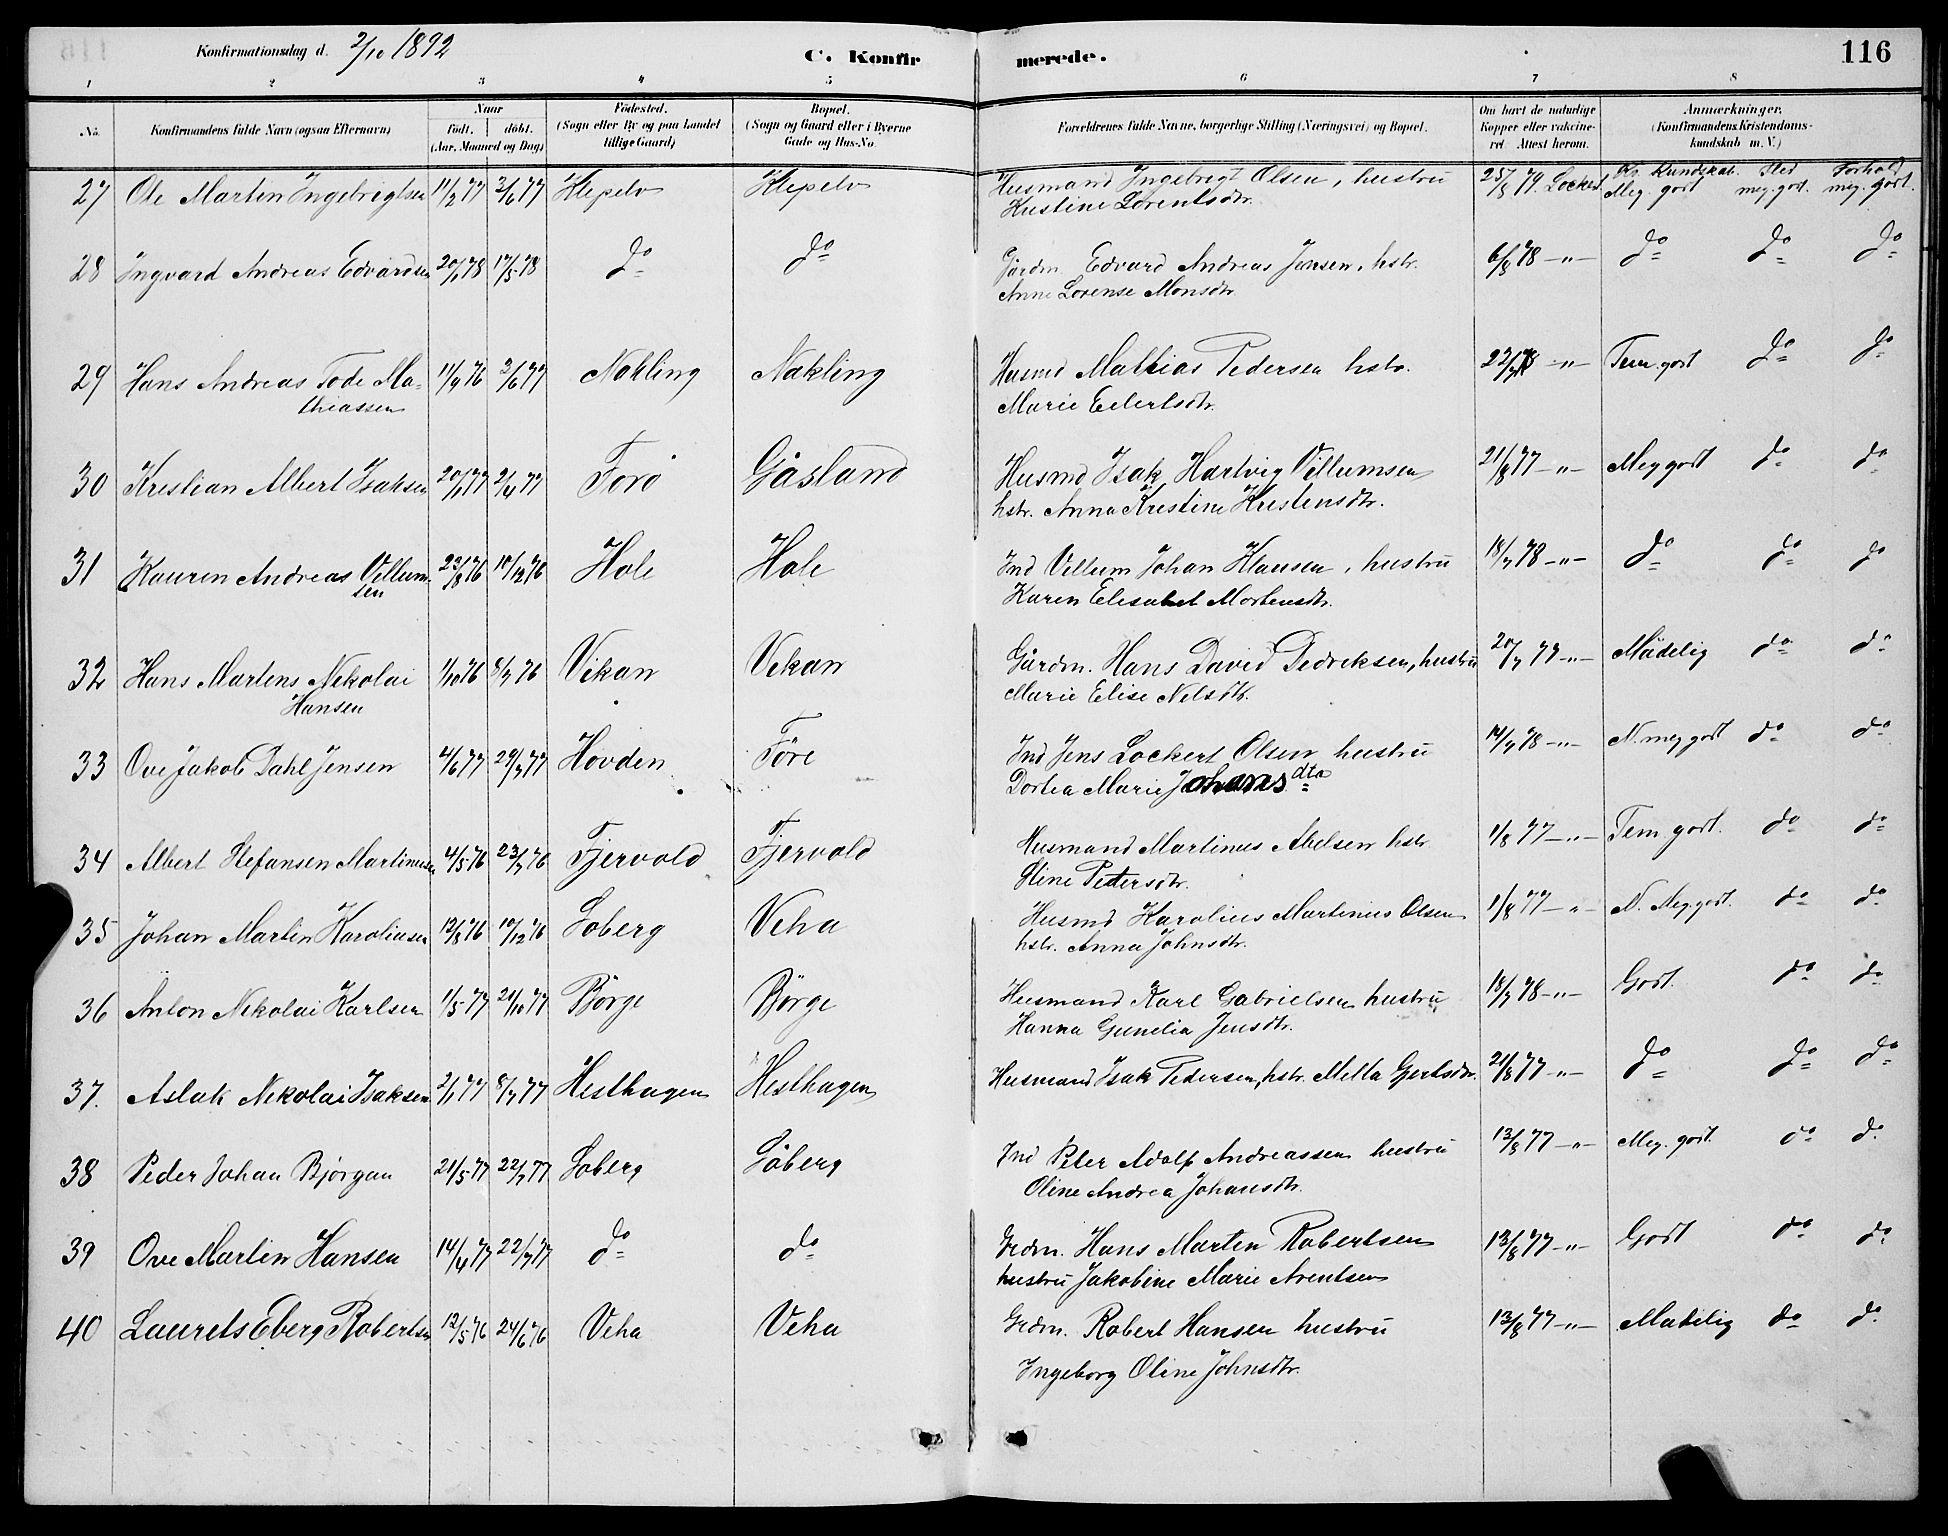 Konfirmationsdag d. 2/10 1892 C. Konfir merede. 116
1 2 3 4 5 6 7 8
No. Konfirmandens fulde Navn (ogsaa Efternavn)
Naar
født. døbt.
(Aar, Maaned og Dag)
Födested.
(Sogn eller By og paa Landet
tillige Gaard)
Bopæl.
(Sogn og Gaard eller i Byerne
Gade og Hus-No.
Forældrenes fulde Navne, borgerlige Stilling (Næringsvei) og Bopæl.
Om havt de naturlige
Kopper eller vakcine-
ret. Attest herom.
Anmærkninger.
(Konfirmandens Kristendoms-
kundskab m. V.)
Kr. Kundskab. Flid Forhold
27 Ole Martin Ingebrigtsen 11/2 77 2/6 77 Klepelv Klepelv Husmand Ingebrigt Olsen, hustru 25/8 79. Lockert Meg. godt meg. godt. meg. godt.
Kristine Lorentsdtr.
28 Ingvard Andreas Edvardsen 20/1 78 17/5 78 do do Gårdm. Edvard Andreas Jensen, hstr. 6/8 78 -"- do do do
Anne Lorense Monsdtr.
29 Hans Andreas Tode Ma- 11/9 76 2/6 77 Nokling Nakling Husmd Mathias Pedersen hstr. -"- Tem. godt do do
thiassen
Marie Eilertsdtr.
30 Kristian Albert Isaksen 20/1 77 2/4 77 Forö Gåsland Husmd Isak Hartvig Villumsen 21/8 77 -"- Meg godt do do
hstr. Anna Kristine Kristensdtr.
31 Kaurin Andreas Villum- 23/8 76 10/12 76 Hole Hole Ind Villum Johan Klausen, hustru 18/7 78 -"- do do do
sen
Karen Elisabet Mortensdtr.
32 Hans Martens Nikolai 1/10 76 8/7 76 Vikan Vekan Gårdm. Hans David Dedriksen, hustru 20/7 77 -"- Mådelig do do
Hansen
Marie Elise Nelsdtr.
33 Ove Jakob Dahl Jensen 4/6 77 29/7 77 Hovden Före Ind Jens Lockert Olsen hustru 14/7 78 -"- N. meg godt do do
Dortea Marie Johansdtr
34 Albert Stefansen Martinusen 4/5 76 23/7 76 Fjervold Fjervold Husmand Martinus Abelsen hstr. 1/8 77 -"- Tem. godt. do do
Stine Petersdtr.
35 Johan Martin Karoliusen 12/8 76 10/12 76 Loberg Veha Husmd Karolius Martinus Olsen 1/8 77 -"- N. Meg. godt. do do
hstr. Anna Johnsdtr.
36 Anton Nikolai Karlsen 1/5 77 21/10 77 Börge Börge Husmand Karl Gabrielsen hustru 18/7 78 -"- Godt. do do
Hanna Gunelia Jensdtr.
37. Aslak Nekolai Isaksen 2/1 77 8/7 77 Hesthagen Hesthagen Husmand Isak Pedersen, hstr. Metta Gertsdtr. 21/8 77 -"- do do do
38 Peder Johan Bjørgan 21/5 77 22/7 77 Loberg Löberg Ind Peter Adolf Andreassen hustru 13/8 77 -"- Meg. godt. do do
Oline Andrea Johansdtr.
39 Ove Martin Hansen 14/4 77 22/7 77 do do Grdm. Hans Martin Robertsen 13/8 77 -"- Godt do do
hustru Jakobine Marie Arentsen
40 Laurits Eberg Robertsen 12/5 76 24/6 76 Veha Veha Grdm. Robert Hansen hustru 13/8 77 -"- Madelig do do
Ingeborg Oline Johnsdtr.